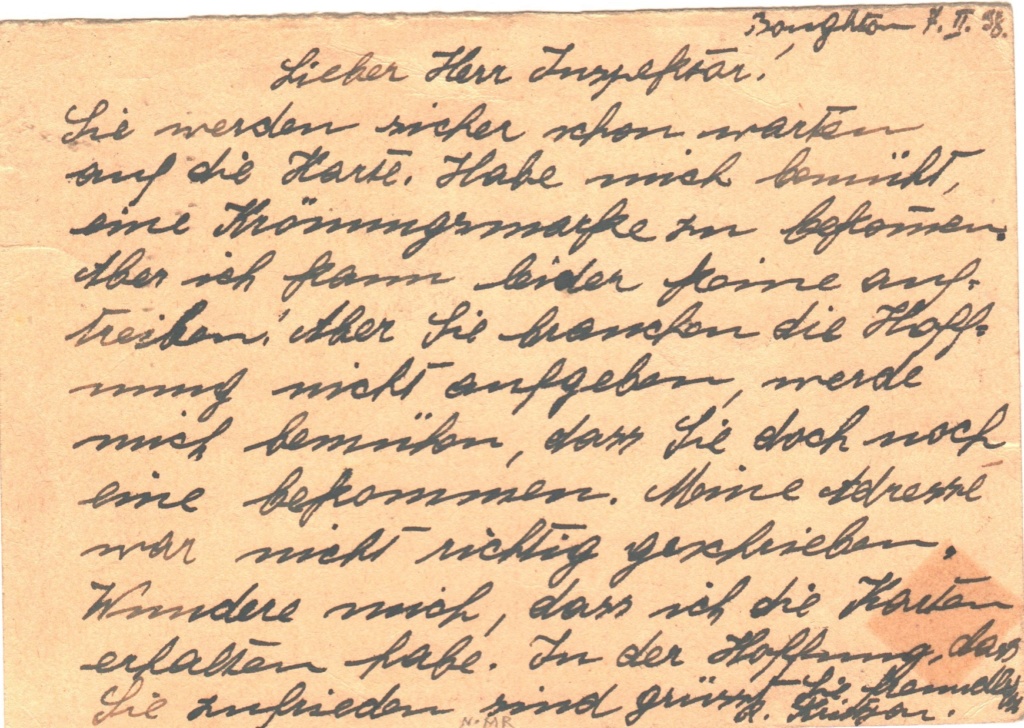 Boughton 7. II. 38.
Lieber Herr Inspektor!
Sie werden sicher schon warten
auf die Karte. Habe mich bemüht,
eine Krönungsmarke zu bekom̄en.
Aber ich kann leider keine auf-
treiben! Aber Sie brauchen die Hoff-
nung nicht aufgeben, werde
mich bemühen, dass Sie doch noch
eine bekommen. Meine Adresse
war nicht richtig geschrieben.
Wundere mich, dass ich die Karten
erhalten habe. In der Hoffnung, dass
Sie zufrieden sind grüsst Sie freundlich
N.MR